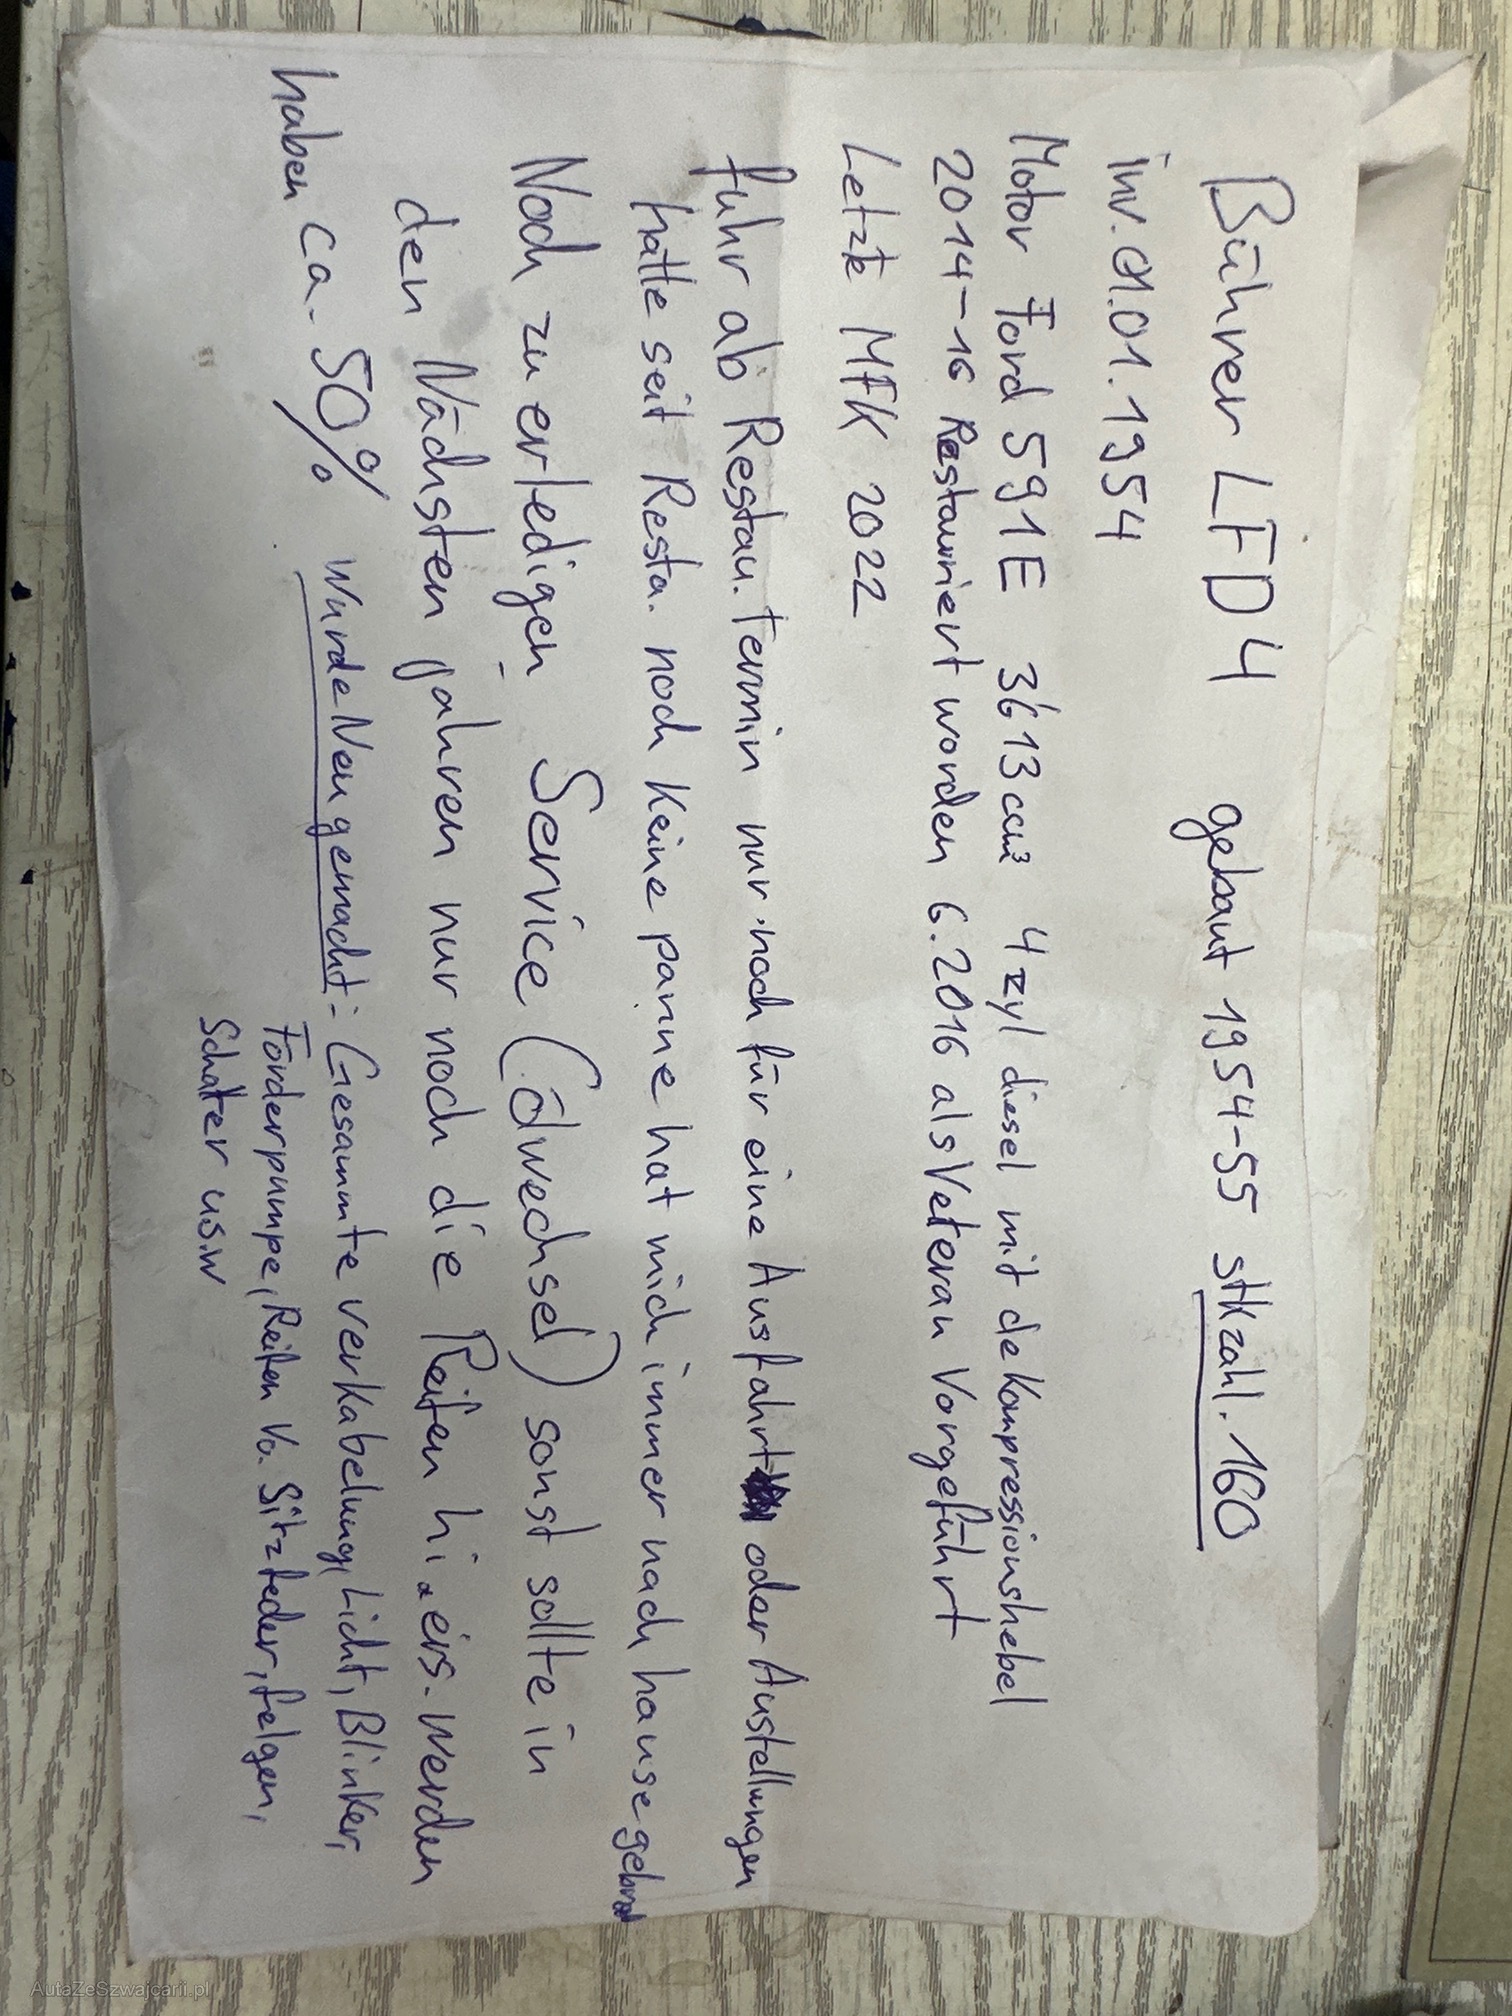 Bührer LFD4 gebaut 1954-55 stkzahl. 160
inv. 01.01.1954
Motor Ford 591E 3613 ccm³ 4zyl diesel mit dekompressionshebel
2014-16 Restauriert worden 6.2016 als Veteran Vorgeführt
Letzte MFK 2022
fuhr ab Restau. termin nur noch für eine Ausfahrt oder Austellungen
hatte seit Resta. noch keine panne hat mich immer nach hause gebracht
Noch zu erledigen Service (ölwechsel) sonst sollte in
den Nächsten jahren nur noch die Reifen hi. ers. werden
haben ca. 50% wurde Neu gemacht: Gesammte verkabelung, Licht, Blinker,
Förderpumpe, Reifen Vo. Sitzfeder, felgen,
Schalter usw
AutaZeSzwajcarii.pl